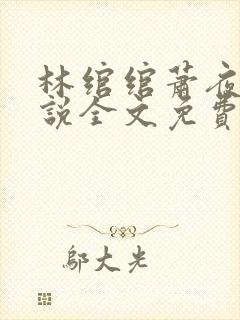 林绾绾萧夜
說全文免費
鄔大光